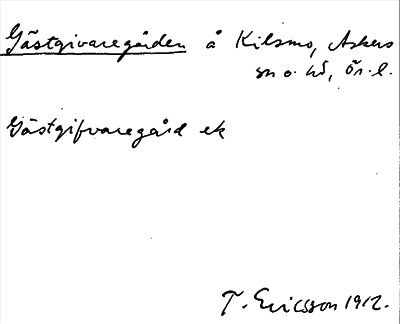 Gästgivaregården å Kilsmo, Askers
sn o. hd, Ör. l.
Gästgifvaregård ek
T. Ericsson 1912.